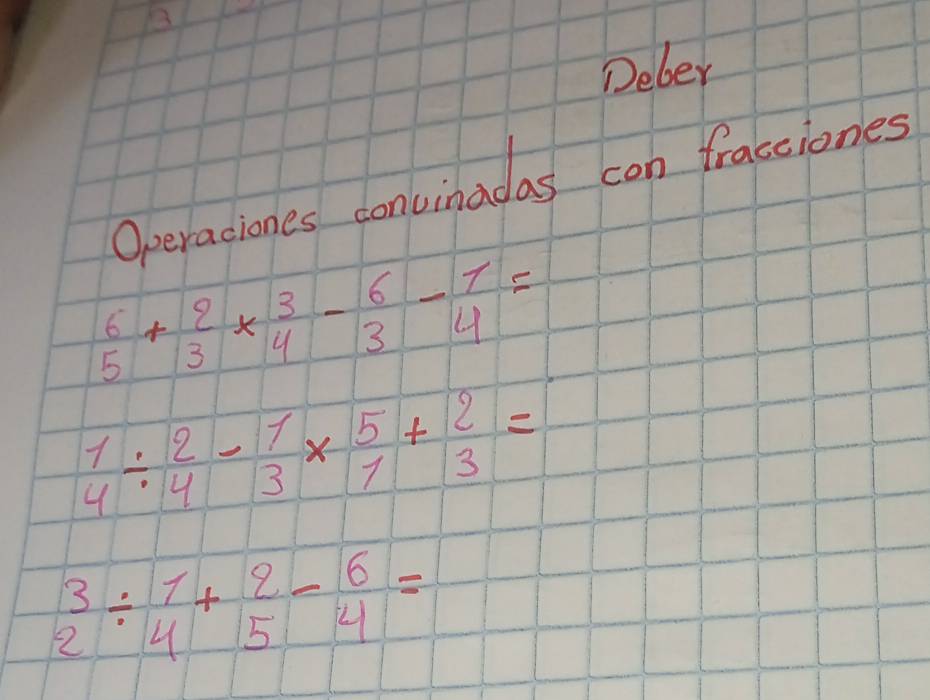 Deber
Operaciones convinadas con fracciones
6/5 + 2/3 × 3/4 - 6/3 - 1/4 =
1/4 ÷ 2/4 - 1/3 × 5/1 + 2/3 =
3/2 ÷ 1/4 + 2/5 - 6/4 =